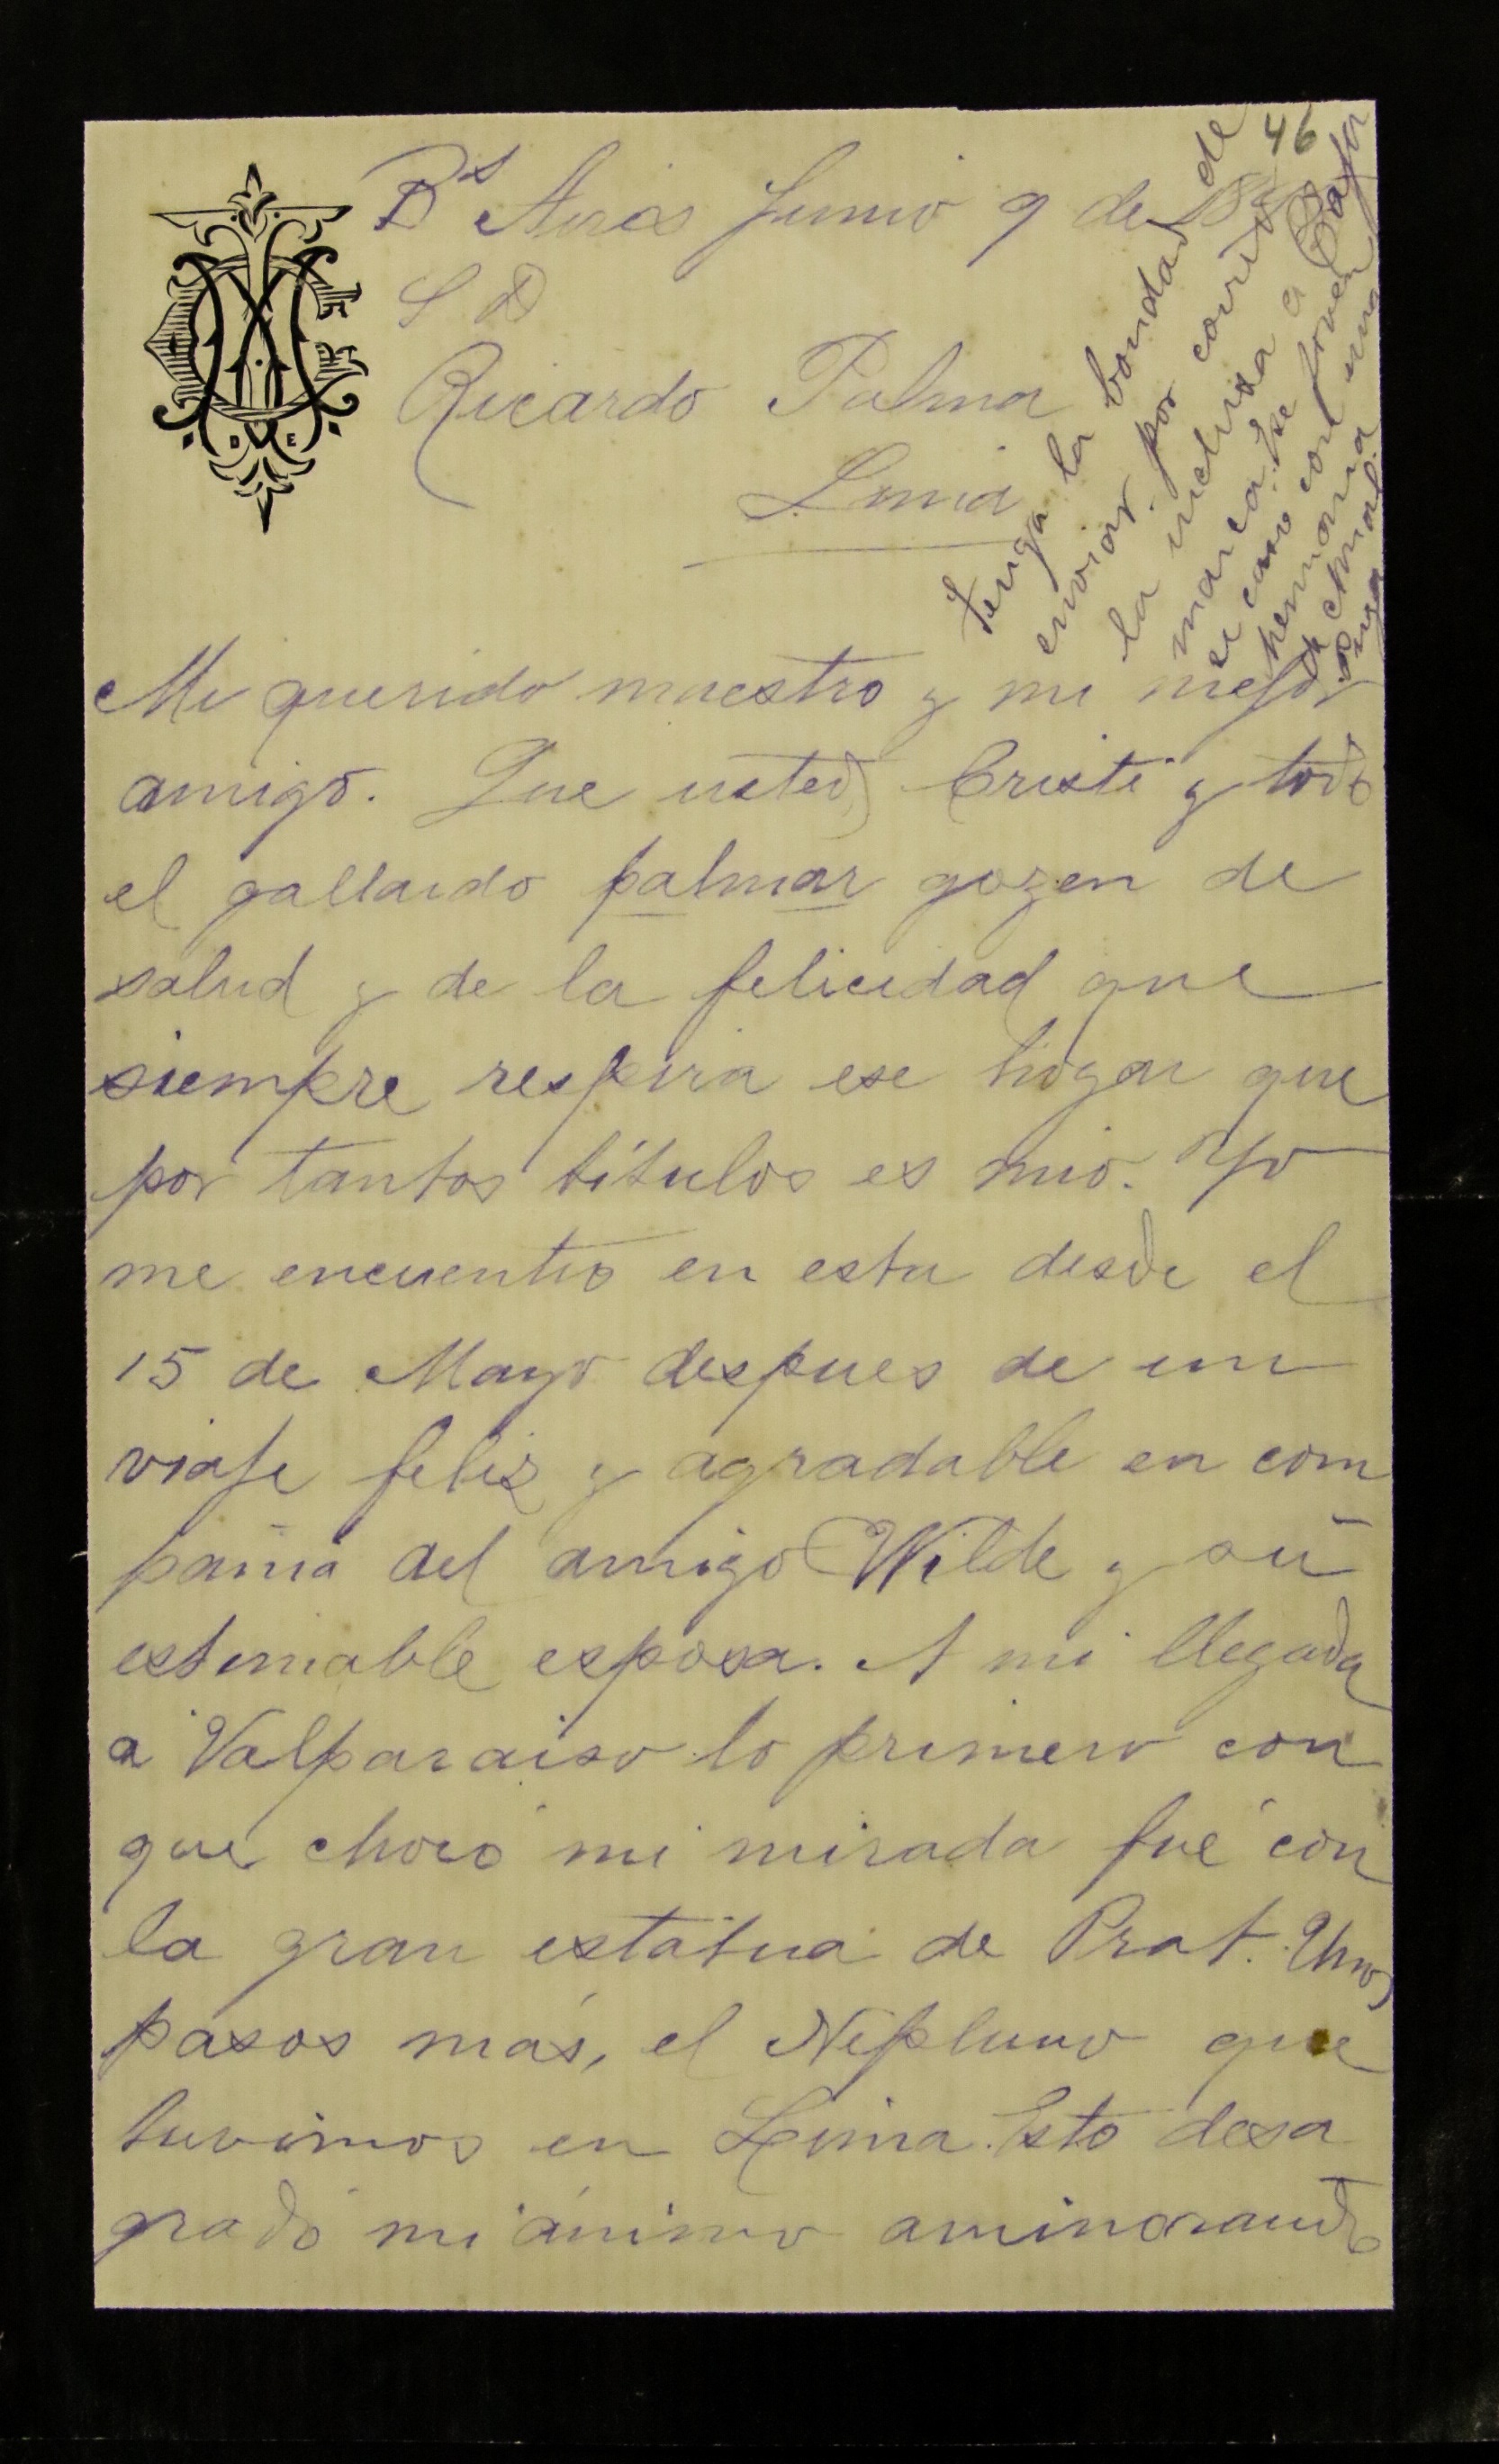 46
Bs Aires Junio 9 de
S D
Ricardo Palma
Lima
Tenga la bondad de
enviar por correo
la inclusa a Caja
marca. Ese joven
se casó con una
hermana
de Amal
Mi querido maestro y mi mejor
amigo. Que usted, Cristi y todo
el gallardo palmar gozen de
salud y de la felicidad que
siempre respira ese hogar que
por tantos títulos es mio. Yo
me encuentro en esta desde el
15 de Mayo despues de un
viaje feliz y agradable en com
pañia del amigo Wilde y su
estimable esposa. A mi llegada
a Valparaiso lo primero con
que chocó mi mirada fué con
la gran estátua de Prat. Unos
pasos más, el Neptuno que
tuvimos en Lima. Esto desa
gradó mi ánimo aminorando